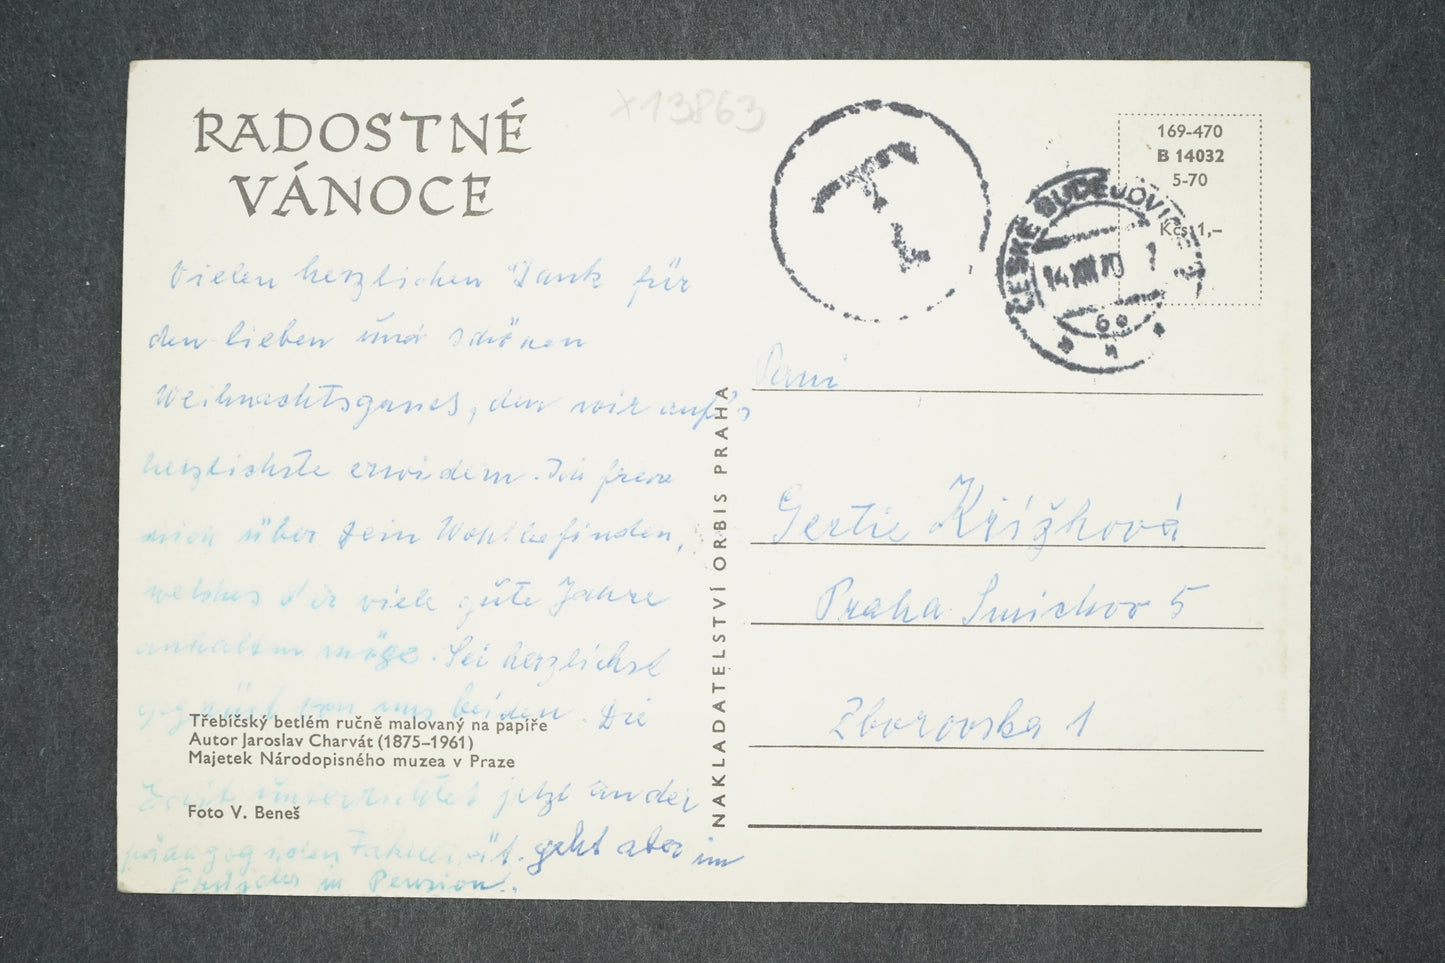 RADOSTNÉ
VÁNOCE
x13863
T
1
ČESKÉ BUDĚJOVICE
14.XII.70
169-470
B 14032
5-70
Kčs 1,–
Vielen herzlichen Dank für
den lieben und schönen
Weihnachtsgruß, den wir auf's
herzlichste erwidern. Ich freue
mich über Dein Wohlbefinden,
welches Dir viele gute Jahre
anhalten möge. Sei herzlichst
gegrüßt von uns beiden. Die
unterrichtet jetzt an der
pädagogischen Fakultät. geht aber im
Frühjahr in Pension.
Třebíčský betlém ručně malovaný na papíře
Autor Jaroslav Charvát (1875–1961)
Majetek Národopisného muzea v Praze
Foto V. Beneš
NAKLADATELSTVÍ ORBIS PRAHA
Paní
Gertie Křížková
Praha Smíchov 5
Zborovska 1